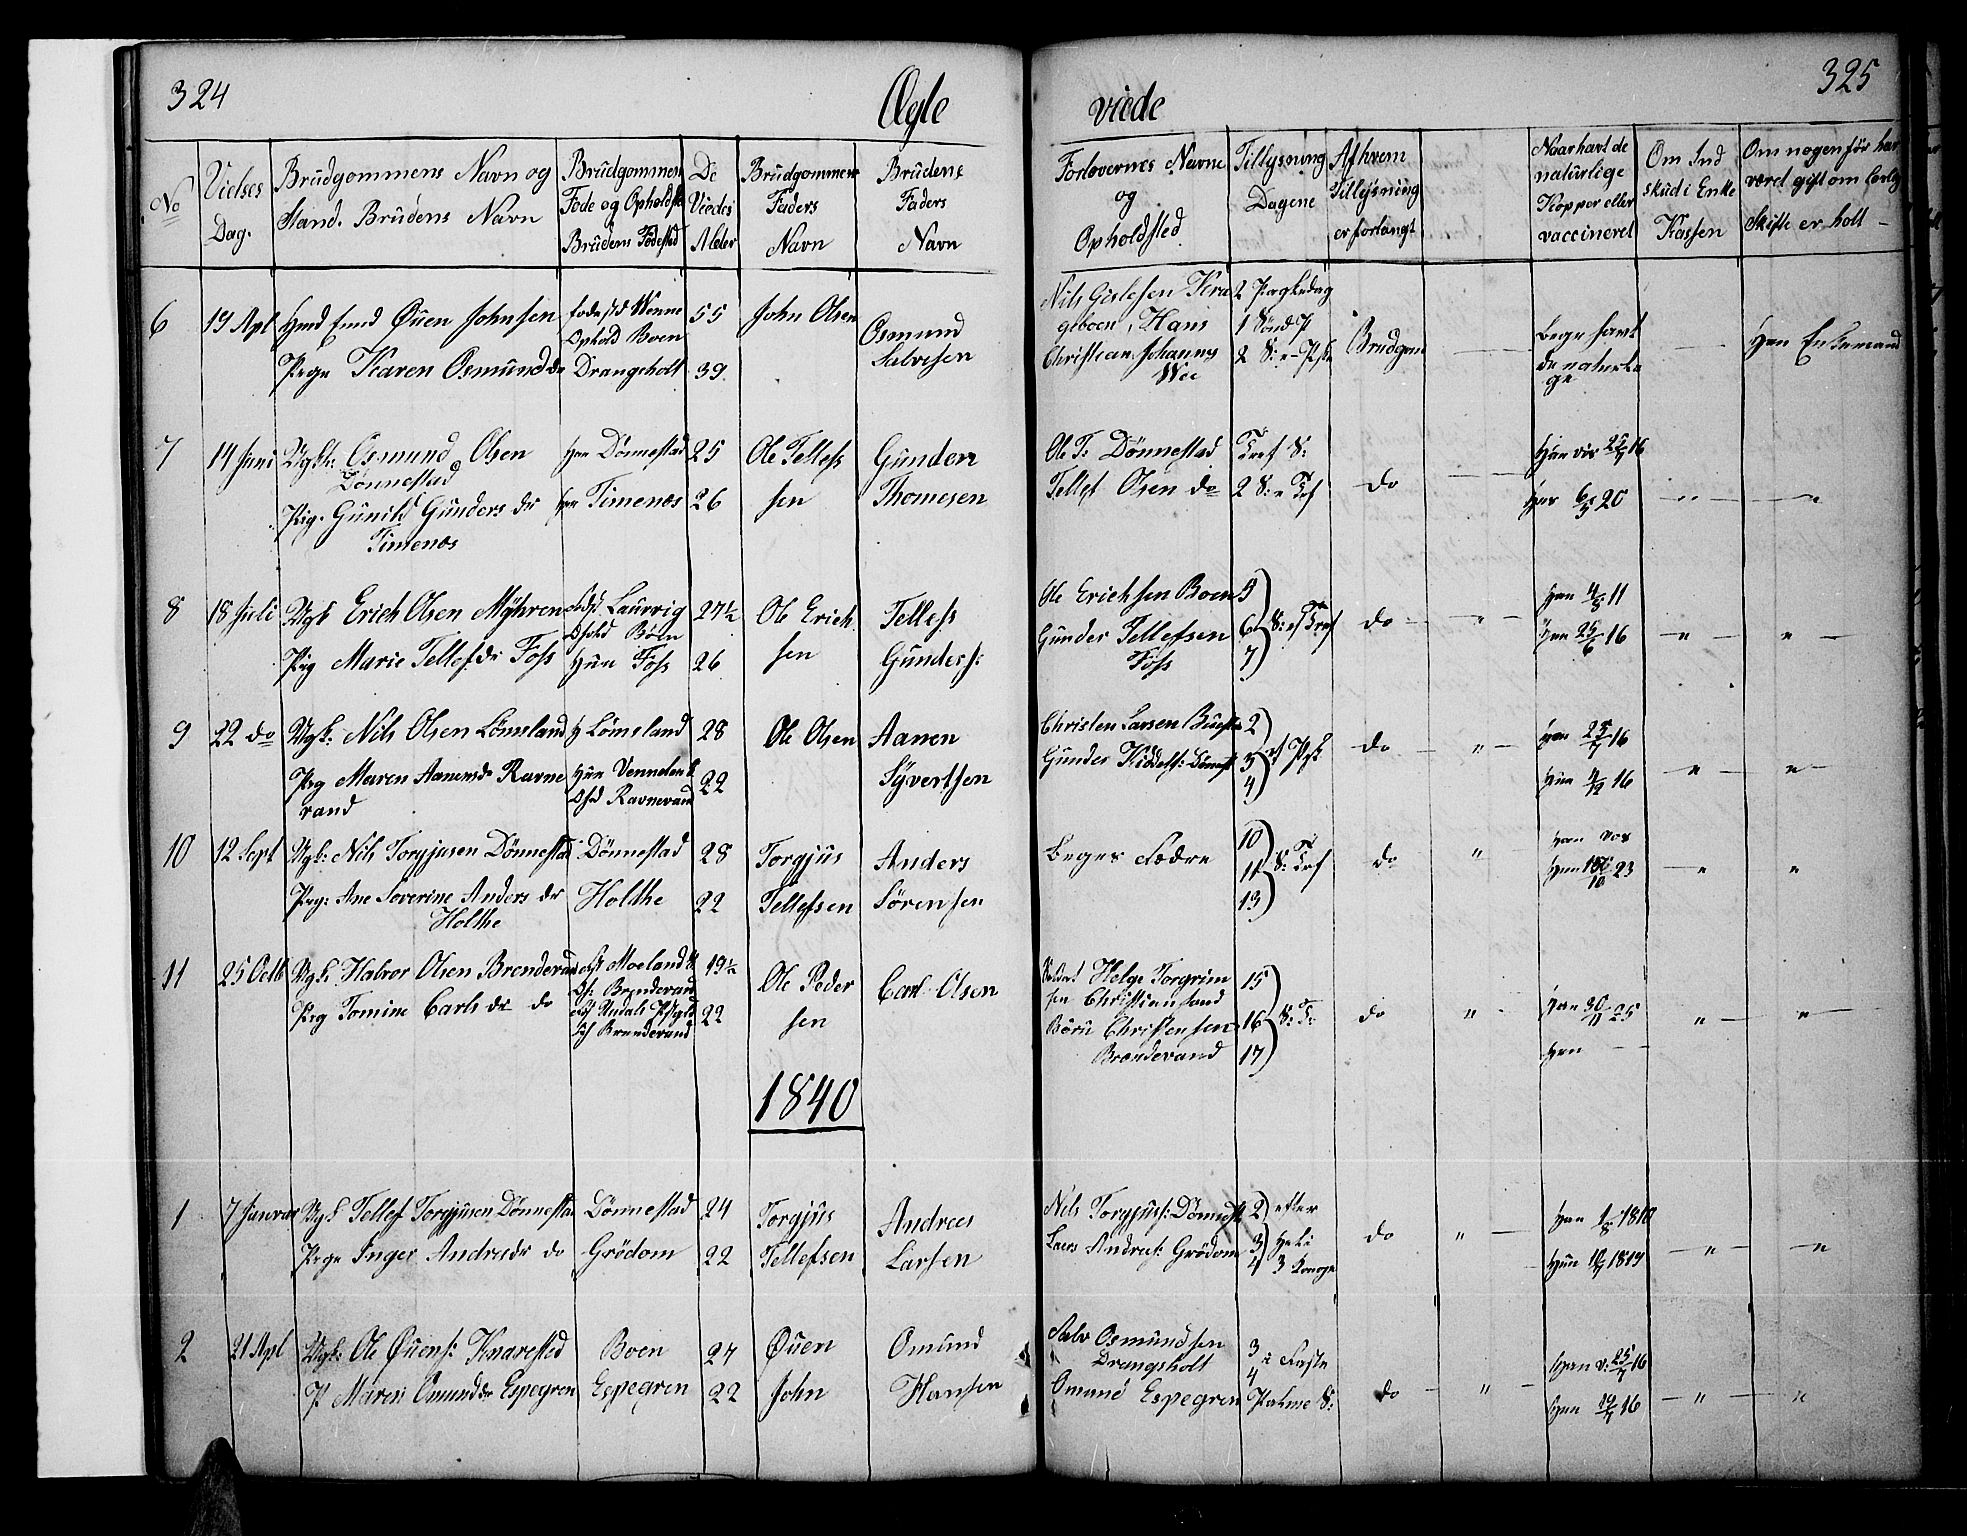 324
Ægte
viede
325
No
Vielses
Dag.
Brudgommens Navn og
Stand. Brudens Navn
Brudgommens
Føde og Opholdst
Brudens Fødested
De
Viedes
Alder
Brudgommens
Faders
Navn
Brudens
Faders
Navn
Forlovernes Navne
og
Opholdsted
Tillysning
Dagene
Af hvem
Tillysning
er forlangt
Naar havt de
naturlige
Kopper eller
vaccineret
Om Ind
skud i Enke
Kassen
Om nogen før har
været gift om lovlig
Skifte er holt
6
19 Apl
Øuen Johnsen
Pige Karen Osmundsdr
fødested
Ophold Boen
Drangsholt
55
39
John Olsen
Osmund
Salvesen
Nils Gislesen
Hans
Christian Johannes
Wee
2 Paaskedag
1 Sønd. P
Brudgom
Begge havt
de naturli
ge
Han Enkemand
7
14 Juni
Ugk: Osmund Olsen
Dønnestad
Pig. Gunild Gunders dr
Timenæs
Han Dønnestad
Hun Timenæs
25
26
Ole Tellefs
sen
Gunder
Thomesen
Ole T: Dønnestad
Tellef Olsen do
do
Han vac 25/7 16
Hun 6/5 20
"
"
8
18 Juli
Ugk Erich Olsen Myhren
Pig Marie Tellefsdr Foss
Laurvig
Ophold Boen
Hun Foss
27½
26
Ole Erich
sen
Tellefs
Gunders:
Ole Erichsen Boen
Gunder Tellefsen
Foss
5
6
7
do
"
Han 4/8 11
Hun 25/6 16
"
"
9
22 do
Ugk: Nils Olsen Lømsland
Pig Maren Aanensdr Ravne
vand
H Lømsland
Hun Vennelen
Ravnevand
28
22
Ole Olsen
Aanen
Syvertsen
Christen Larsen
Gunder
2
3
4
do
"
Han 25/7 16
Hun 16
"
"
10
12 Sept
Ugk: Nils Torgjusen Dønnestad
Pig: Ane Severine Anders dr
Holthe
Dønnestad
Holthe
28
22
Torgjus
Tellefsen
Anders
Sørensen
Beges Fædre
10
11
13
do
"
Han vac
Hun 23
"
"
11
25 Octb
Ugk Halvor Olsen Brendevand
Pig Tomine Carls dr do
Moeland
Brendevand
Brendevand
19½
22
Ole Peder
sen
Carl Olsen
Helge Torgrim
sen Christiansand
Børu Christensen
Brendevand
15
16
17
S: T:
do
"
Han 30/11 25
Hun
"
"
1840
1
7 Januar
Ugk Tellef Torgjusen Dønnestad
Pige Inger Andreasdr do
Dønnestad
Grødom
24
22
Torgjus
Tellefsen
Andreas
Larsen
Nils Torgjus: Dønnest
Lars Andreas: Grødom
2
3
4
efter
Heli
3 Konge
do
"
Han 1/8 1810
Hun 1819
"
"
2
21 Apl
Ugk: Ole Øuens: Knarested
P Maren Omundsdr Espegren
Boen
Espegren
27
22
Øuen
John
Omund
Hansen
Salv Osmundsen
Drangsholt
Omund Espegren
3
4
i Faste
Palme S:
do
"
Han v: 25/7 16
Hun 16
"
"